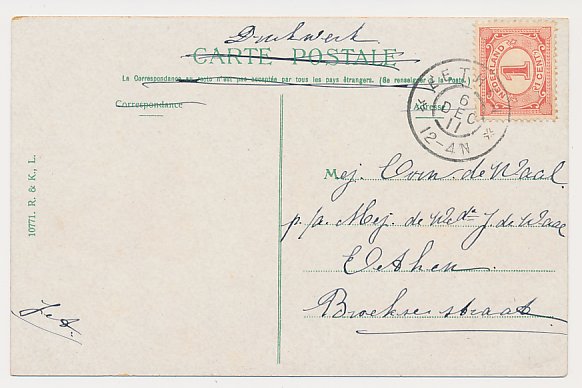 Drukwerk
CARTE POSTALE
La Correspondance au recto n'est pas acceptée par tous les pays étrangers. (Se renseigner à la Poste.)
Correspondance
Adresse
NEDERLAND
1
CENT
6 DEC 11
12-4N
Mej. Corn. de Waal
p/a Mej. de Wde J. de Waal
Ethen
Broeksestraat
10771. R. & K., L.